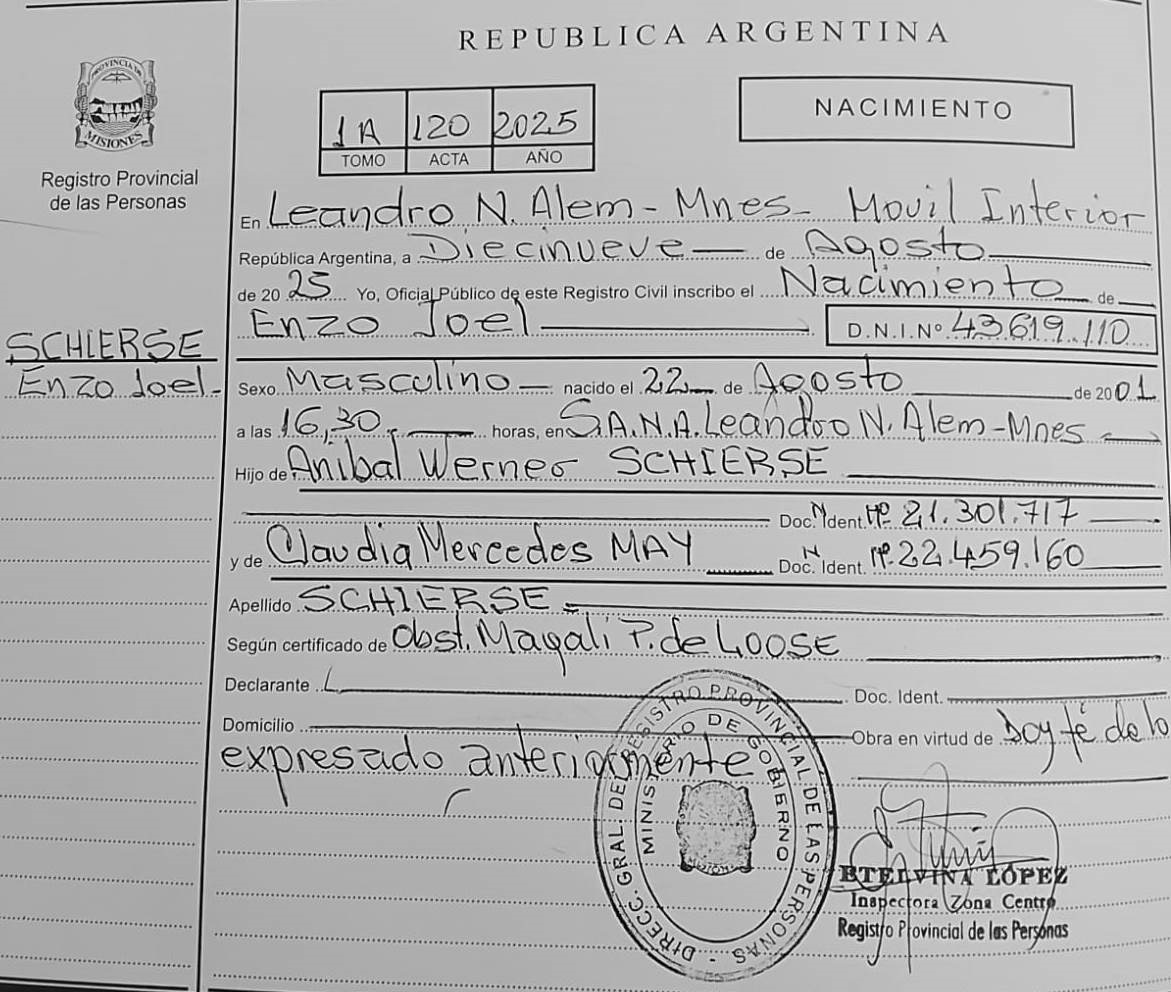 REPUBLICA ARGENTINA
PROVINCIA DE MISIONES
Registro Provincial
de las Personas
1A 120 2025
TOMO ACTA AÑO
NACIMIENTO
En Leandro N. Alem - Mnes - Movil Interior
República Argentina, a Diecinueve de Agosto
de 20 25 Yo, Oficial Público de este Registro Civil inscribo el Nacimiento de
Enzo Joel D.N.I.Nº 43 619.110
SCHIERSE
Enzo Joel-
Sexo Masculino nacido el 22 de Agosto de 20 01
a las 16,30 horas, en S.A.N.A. Leandro N. Alem - Mnes
Hijo de Anibal Werner SCHIERSE
Doc. Ident. Nº 21.301.717
y de Claudia Mercedes MAY Doc. Ident. Nº 22.459.160
Apellido SCHIERSE =
Según certificado de Obst. Magali P. de LOOSE
Declarante Doc. Ident.
Domicilio Obra en virtud de Doy fé de lo
expresado anteriormente
DIRECC. GRAL. DEL REGISTRO PROVINCIAL DE LAS PERSONAS -
MINISTERIO DE GOBIERNO
ETELVINA LÓPEZ
Inspectora Zona Centro
Registro Provincial de las Personas